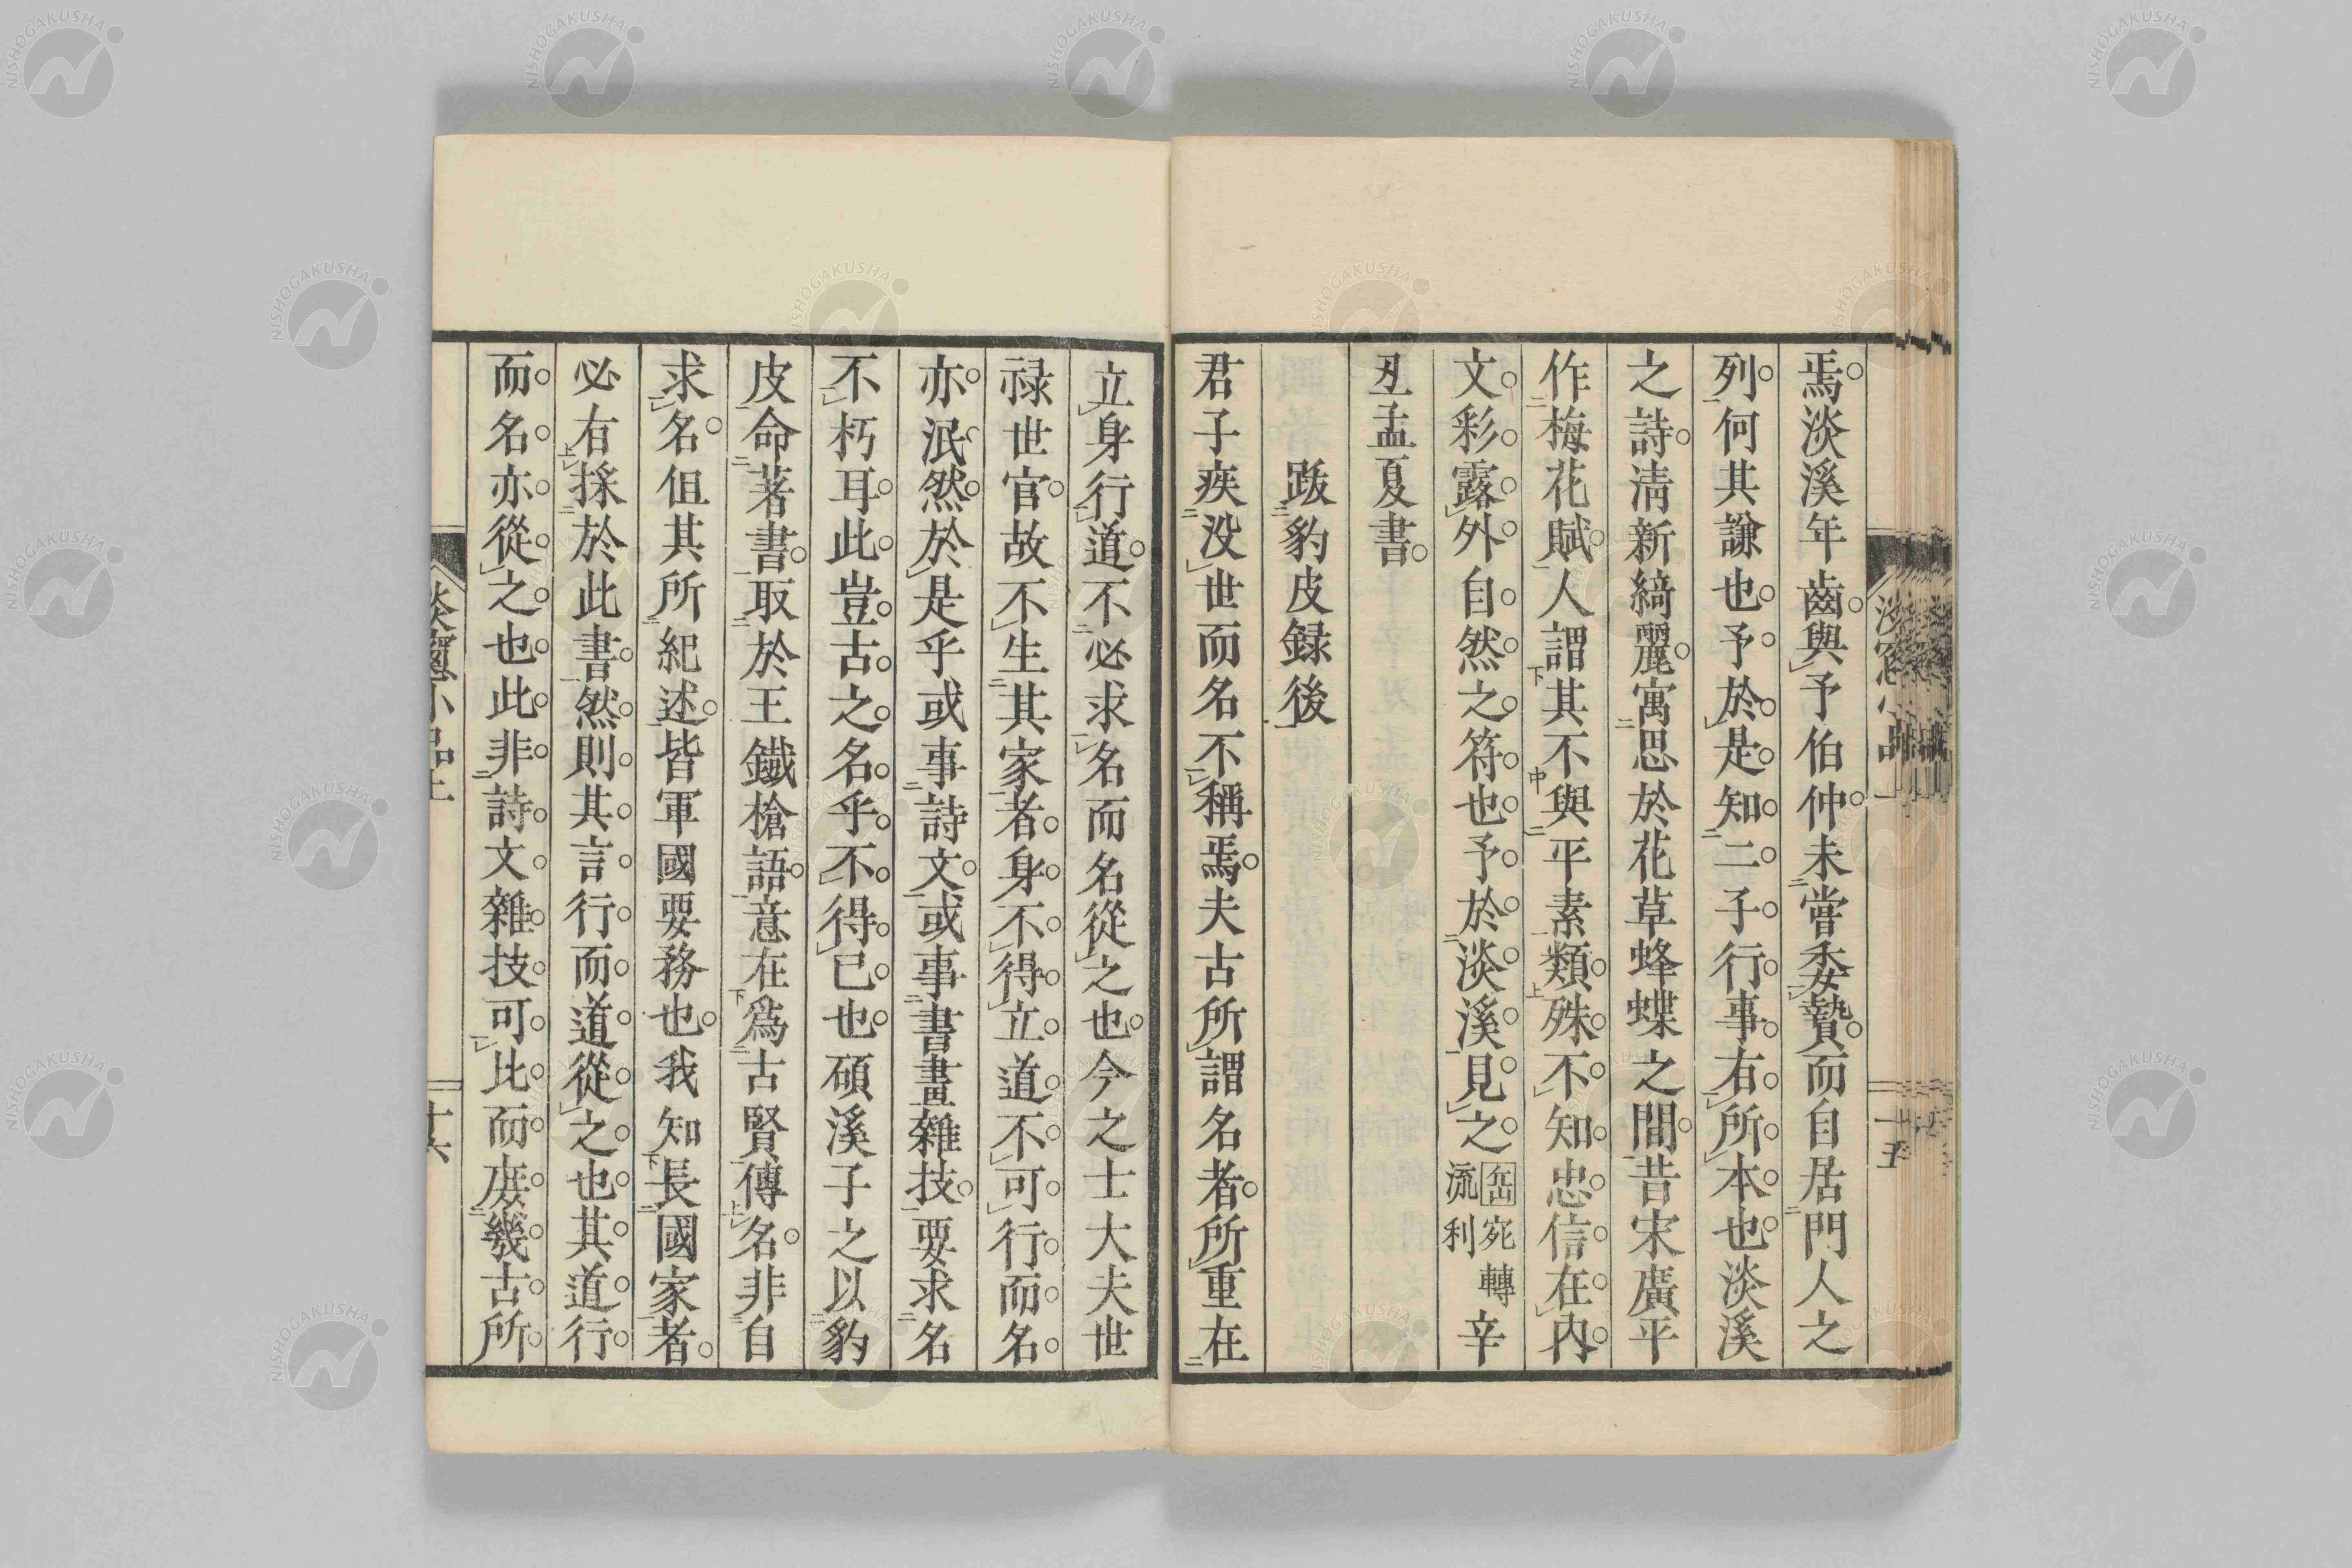 焉淡溪年齒與予伯仲未嘗委贄而自居門人之
列何其謙也予於是知二子行事有所本也淡溪
之詩清新綺麗寓思於花草蜂蝶之間昔宋廣平
作梅花賦人謂其不與平素類殊不知忠信在内
文彩露外自然之符也予於淡溪見之 宛轉流利 辛
丑孟夏書
跋豹皮録後
君子疾没世而名不稱焉夫古所謂名者所重在
立身行道不必求名而名從之也今之士大夫世
禄世官故不生其家者身不得立道不可行而名
亦泯然於是乎或事詩文或事書畫雜技要求名
不朽耳此豈古之名乎不得已也碩溪子之以豹
皮命著書取於王鐵槍語意在爲古賢傳名非自
求名但其所紀述皆軍國要務也我知長國家者
必有採於此書然則其言行而道從之也其道行
而名亦從之也此非詩文雜技可比而庶幾古所
十六
NISHOGAKUSHA